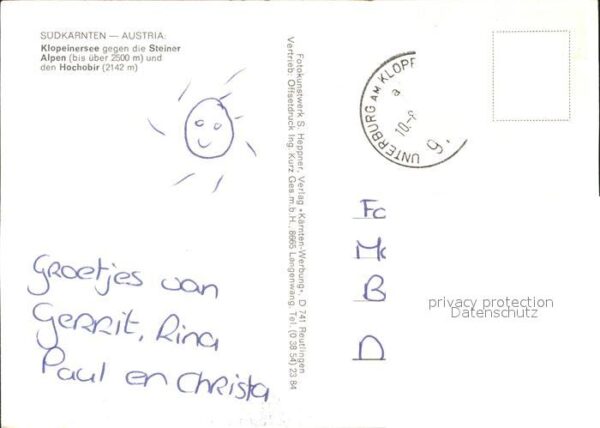 SÜDKÄRNTEN — AUSTRIA:
Klopeinersee gegen die Steiner
Alpen (bis über 2500 m) und
den Hochobir (2142 m)
Groetjes van
Gerrit, Rina
Paul en Christa
Fotokunstwerk S. Heppner, Verlag »Kärnten-Werbung«, D 741 Reutlingen
Vertrieb: Offsetdruck Ing. Kurz Ges.m.b.H., 8665 Langenwang, Tel. (0 38 54) 23 84
UNTERBURG AM KLOPE
a
10.-8
9.
Fc
Mc
B
D
privacy protection
Datenschutz